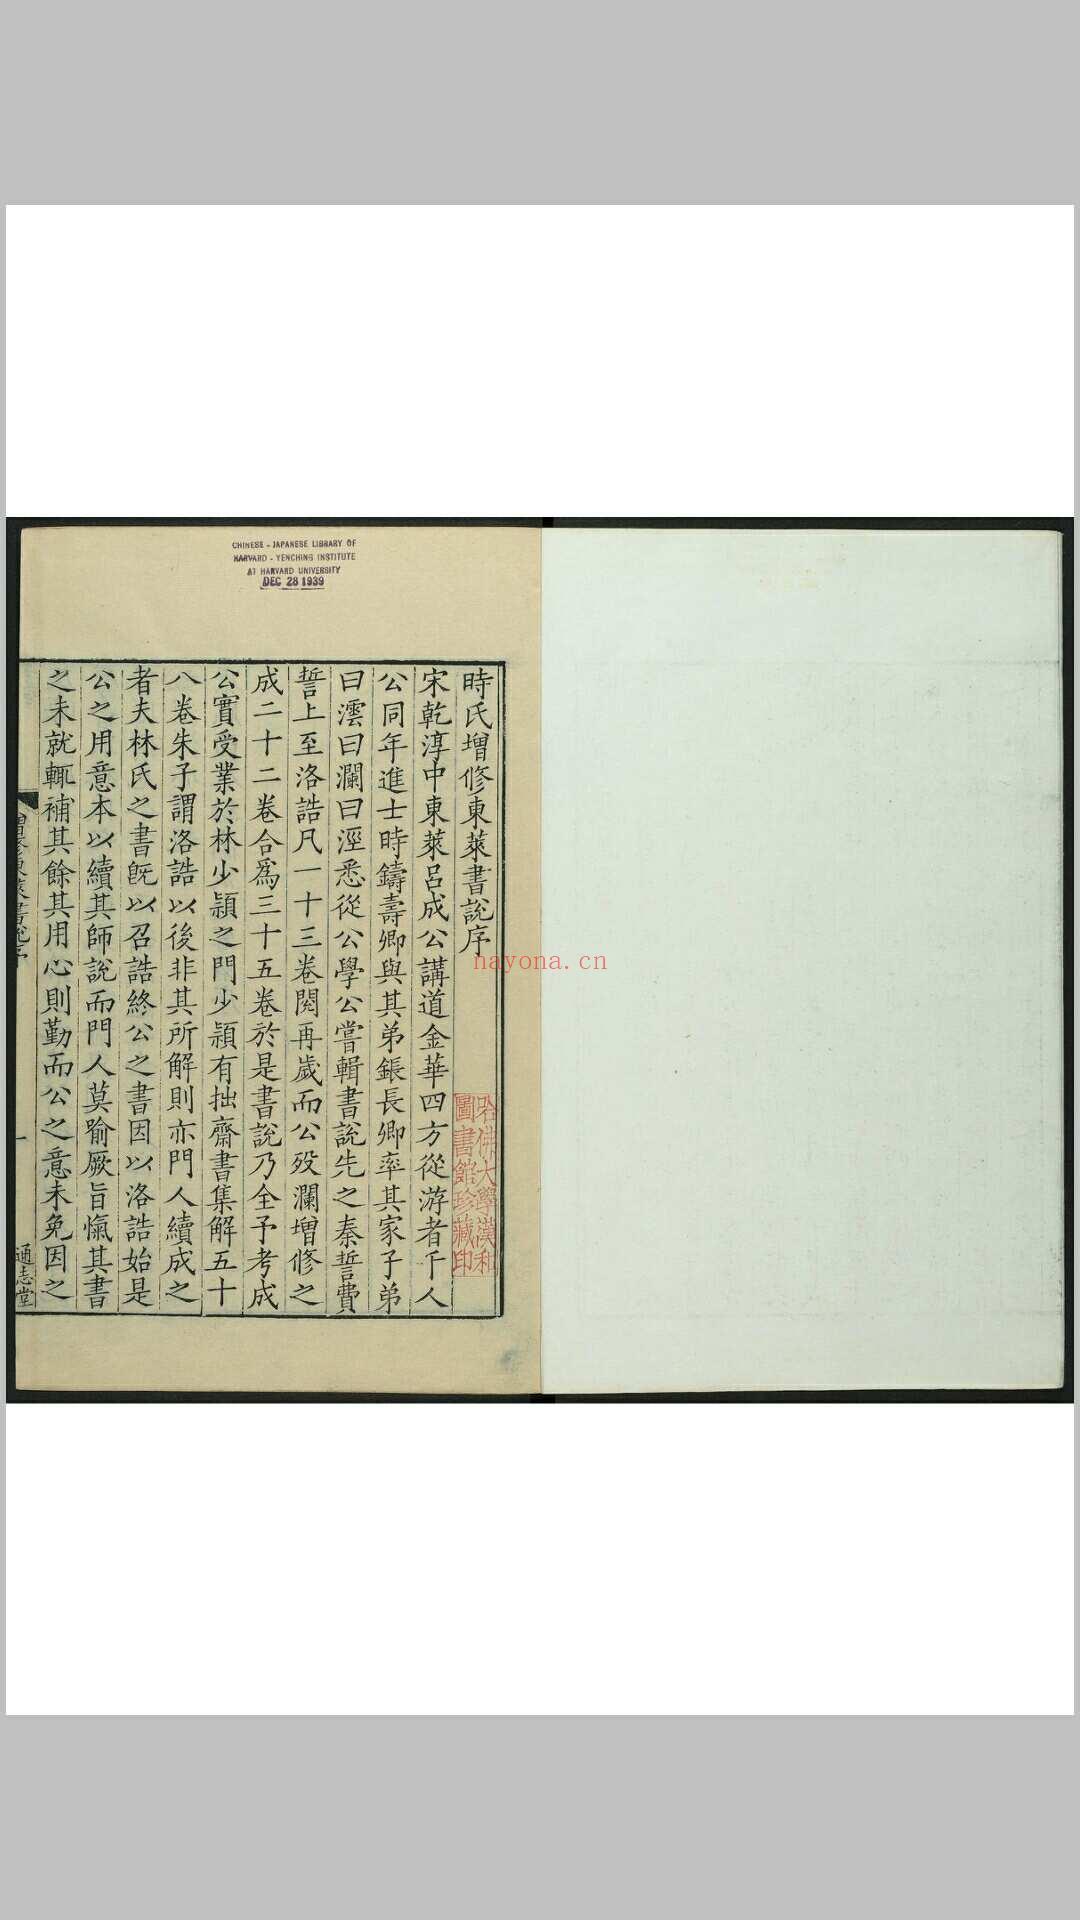 CHINESE - JAPANESE LIBRARY OF
HARVARD - YENCHING INSTITUTE
AT HARVARD UNIVERSITY
DEC 28 1939
時氏增修東萊書說序
宋乾淳中東萊呂成公講道金華四方從游者千人
公同年進士時鑄壽卿與其弟鋹長卿率其家子弟
曰澐曰瀾曰涇悉從公學公嘗輯書說先之秦誓費
誓上至洛誥凡一十三卷閱再歲而公歿瀾增修之
成二十二卷合爲三十五卷於是書說乃全予考成
公實受業於林少頴之門少頴有拙齋書集解五十
八卷朱子謂洛誥以後非其所解則亦門人續成之
者夫林氏之書旣以召誥終公之書因以洛誥始是
公之用意本以續其師說而門人莫喻厥旨愾其書
之未就輒補其餘其用心則勤而公之意未免因之
增修東萊書說序
一
通志堂
哈佛大學漢和
圖書館珍藏印
nayona.cn